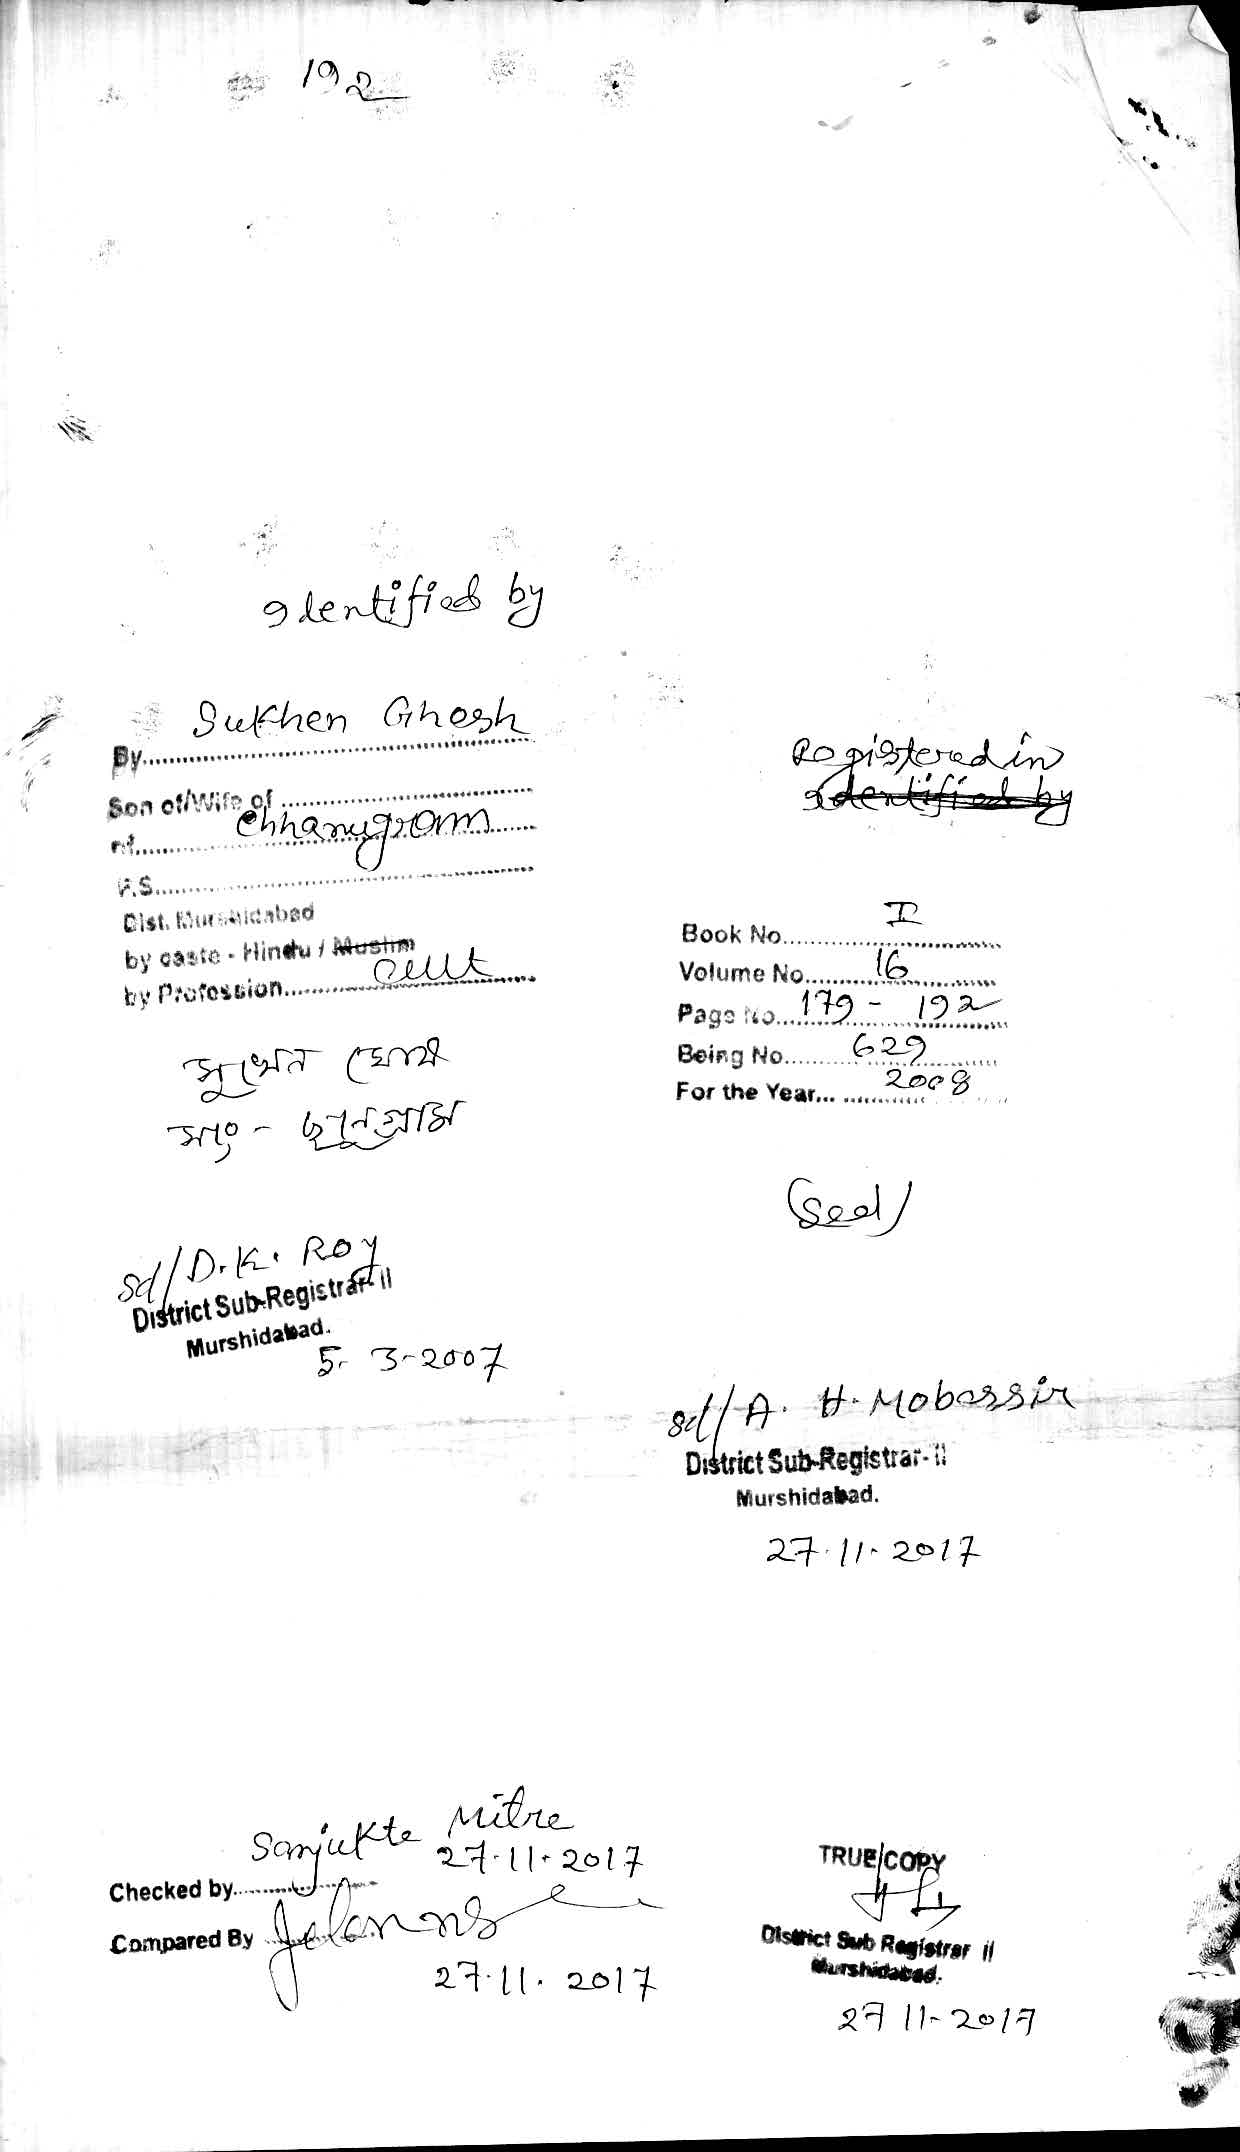 192
Identified by
Sukhen Ghosh
By
Son of/Wife of
Chhanugram
of
P.S.
Dist. Murshidabad
by caste - Hindu / Muslim
by Profession Cult
সুখেন ঘোষ
সাং - ছানুগ্রাম
sd/ D. K. Roy
District Sub-Registrar-II
Murshidabad.
5-3-2007
Registered in
Identified by
Book No. I
Volume No. 16
Page No. 179 - 192
Being No. 629
For the Year... 2008
(Seal)
sd/ A. H. Mobassir
District Sub-Registrar-II
Murshidabad.
27.11.2017
Sanjukta Mitra
27.11.2017
Checked by
Compared By
27.11.2017
TRUE COPY
District Sub Registrar II
Murshidabad.
27 11-2017